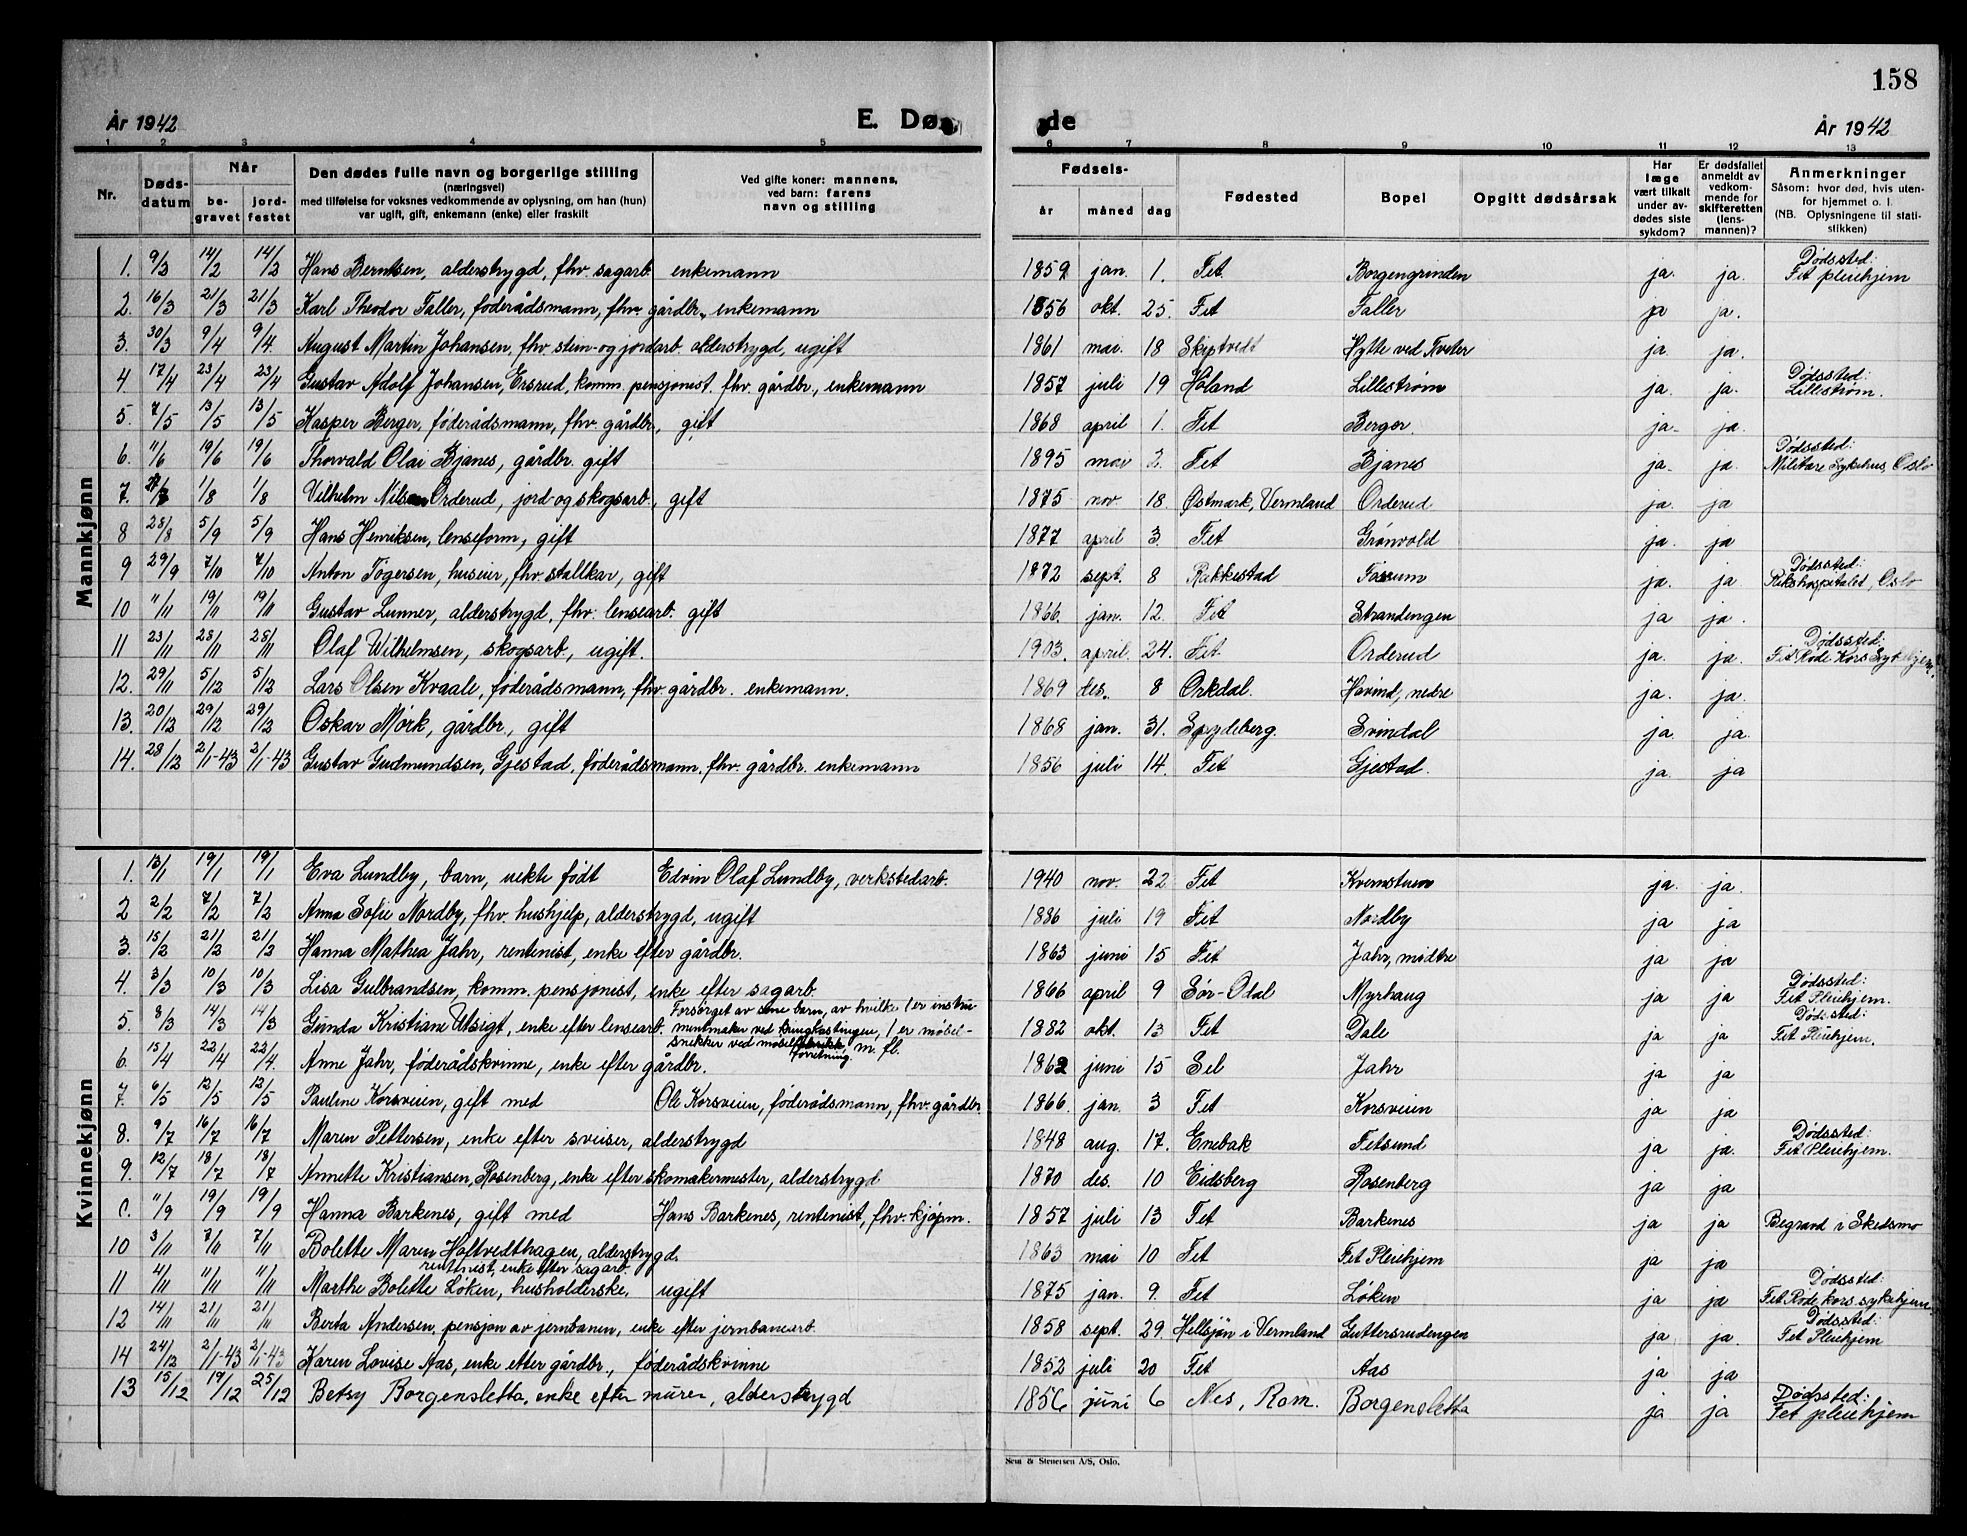 158
År 1942 E. Dø de År 1942
1 2 3 4 5 6 7 8 9 10 11 12 13
Nr. Døds-datum Når be-gravet jord-festet Den dødes fulle navn og borgerlige stilling (næringsvei) med tilføielse for voksnes vedkommende av oplysning, om han (hun) var ugift, gift, enkemann (enke) eller fraskilt Ved gifte koner: mannens, ved barn: farens navn og stilling Fødsels- år måned dag Fødested Bopel Opgitt dødsårsak Har læge vært tilkalt under av-dødes siste sykdom? Er dødsfallet anmeldt av vedkom-mende for skifteretten (lens-mannen)? Anmerkninger Såsom: hvor død, hvis uten-for hjemmet o. l. (NB. Oplysningene til stati-stikken)
Mannkjønn
1. 9/3 14/2 14/2 Hans Berntsen, alderstrygd, fhv. sagarb. enkemann 1859 jan. 1. Fet Borgengrinden ja. ja. Dødssted: Fet pleiehjem
2. 16/3 21/3 21/3 Karl Theodor Faller, föderådsmann, fhv. gårdbr., enkemann 1856 okt. 25. Fet Faller ja ja.
3. 30/3 9/4 9/4. August Martin Johansen, fhv. stein- og jordarb. alderstrygd, ugift 1861 mai. 18 Skiptvedt Hytte ved Tveter ja. ja.
4. 17/4 23/4 23/4 Gustav Adolf Johansen, Ersrud, komm. pensjonist. fhv. gårdbr., enkemann 1857 juli 19 Høland Lillestrøm ja. ja. Dødssted: Lillestrøm.
5. 7/5 13/5 13/5 Kasper Berger, föderådsmann, fhv. gårdbr., gift 1868 april 1. Fet Berger. ja. ja.
6. 11/6 19/6 19/6 Thorvald Olai Bjanes, gårdbr. gift 1895 mai 2. Fet Bjanes ja. ja. Dødssted: Militære Sykehus, Oslo
7. 1/8 1/8 Vilhelm Nilsen Orderud, jord- og skogsarb., gift 1875 nov 18. Østmark, Vermland Orderud ja. ja
8 28/8 5/9 5/9 Hans Henriksen, lenseform, gift 1877 april 3. Fet Grönvold ja. ja
9 29/9 7/10 7/10 Anton Tögersen, huseier, fhv. stallkar, gift 1872 sept. 8 Rakkestad Fossum ja. ja Dødssted: Rikshospitalet, Oslo
10 11/11 19/11 19/11 Gustav Lunner, alderstrygd, fhv. lensearb. gift 1866. jan. 12. Fet Strandengen ja ja.
11 23/11 28/11 28/11 Olaf Wilhelmsen, skogsarb., ugift. 1903. april. 24. Fet Orderud ja. ja. Dødssted: Fet Røde Kors Sykehjem.
12. 29/11 5/12 5/12 Lars Olsen Kvaale, föderådsmann, fhv. gårdbr. enkemann. 1869 des. 8 Orkdal. Høvind, nedre ja. ja.
13. 20/12 29/12 29/12 Oskar Mørk, gårdbr., gift 1868 jan. 31. Spydeberg. Svindal ja. ja.
14. 28/12 2/1-43 2/1-43 Gustav Gudmundsen, Gjestad, föderådsmann, fhv. gårdbr. enkemann 1856 juli 14. Fet Gjestad. ja. ja
Kvinnekjønn
1. 13/1 19/1 19/1 Eva Lundby, barn, uekte født Edvin Olaf Lundby, verkstedarb. 1940 nov. 22 Fet Kvernstuen ja. ja.
2 2/2 7/2 7/2 Anna Sofie Nordby, fhv. hushjelp, alderstrygd, ugift 1886 juli 19 Fet Nordby ja ja
3. 15/2 21/2 21/2 Hanna Mathea Jahr, rentenist, enke efter gårdbr. 1863 juni 15 Fet Jahr, midtre ja ja
4. 3/3 10/3 10/3 Lisa Gulbrandsen, komm. pensjonist, enke efter sagarb. 1866 april 9 Sör-Odal Myrhaug ja ja Dødssted: Fet Pleiehjem.
5. 8/3 14/3 14/3 Gunda Kristiane Utsigt, enke efter lensearb. Forsörget av sine barn, av hvilke 1 er instru-mentmaker ved kringkastingen, 1 er møbel-snekker ved møbelfabrikk forretning, m. fl. 1882 okt. 13 Fet Dale ja ja Dødssted: Fet Pleiehjem.
6. 15/4 22/4 22/4. Anne Jahr, föderådskvinne, enke efter gårdbr. 1862 juni 15 Sel Jahr ja ja
7. 6/5 12/5 12/5 Pauline Korsveien, gift med Ole Korsveien, föderådsmann, fhv. gårdbr. 1866. jan. 3 Fet Korsveien ja ja
8. 9/7 16/7 16/7 Maren Pettersen, enke efter sveiser, alderstrygd 1848 aug. 17. Enebak Fetsund ja ja. Dødssted: Fet Pleiehjem.
9. 12/7 18/7 18/7 Annette Kristiansen, Rosenberg, enke efter skomakermester, alderstrygd 1870 des. 10 Eidsberg Rosenberg ja ja
0. 11/9 19/9 19/9 Hanna Barkenes, gift med Hans Barkenes, rentenist, fhv. kjøpm. 1857 juli 13 Fet Barkenes ja ja Begravd i Skedsmo
10 3/11 7/11 7/11 Bolette Maren Hoftvedthagen, alderstrygd. rentenist, enke efter sagarb. 1863 mai 10 Fet Fet Pleiehjem ja ja
11 4/11 11/11 11/11 Marthe Bolette Löken, husholderske, ugift 1875 jan. 9. Fet Löken ja ja Dødssted: Fet Røde kors sykehjem
12 14/11 21/11 21/11 Berta Andersen, pensjon av jernbanen, enke efter jernbanearb. 1858 sept. 29. Hellsjön i Vermland Guttersrudengen ja ja. Dødssted: Fet Pleiehjem
14 24/12 2/1-43 2/1-43 Karen Lovise Aas, enke etter gårdbr., föderådskvinne 1852 juli 20 Fet Aas ja ja
13 15/12 19/12 25/12 Betsy Borgensletta, enke efter murer, alderstrygd 1856 juni 6 Nes, Rom. Borgensletta ja ja Dødssted: Fet pleiehjem
Sem & Stenersen A/S, Oslo.